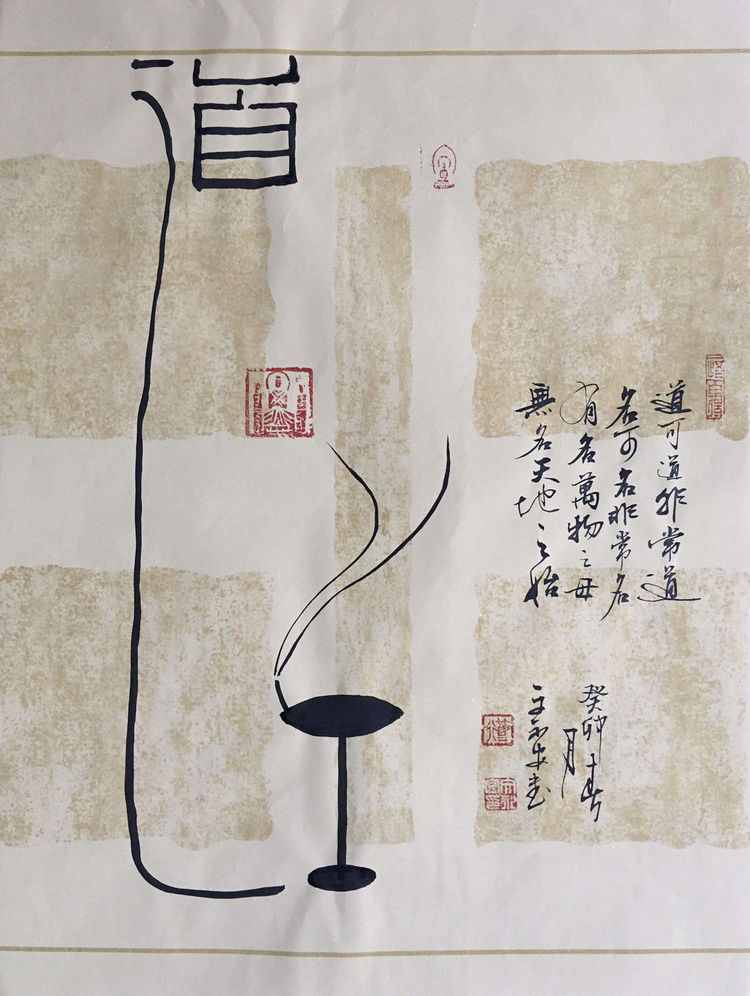 道
道可道非常道
名可名非常名
有名萬物之母
無名天地之始
癸卯